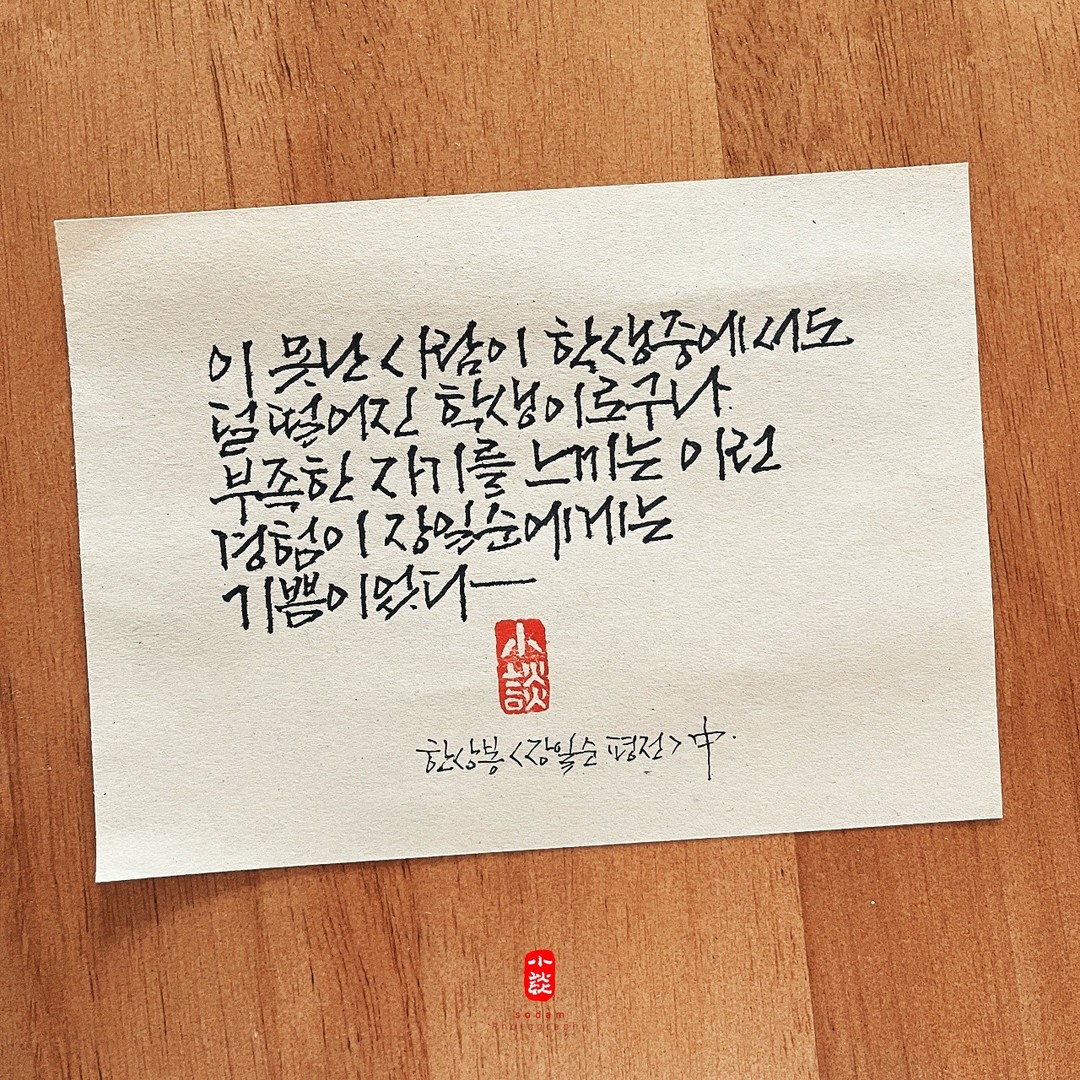 이 못난 사람이 학생중에서도
덜 떨어진 학생이로구나.
부족한 자기를 느끼는 이런
경험이 장일순에게는
기쁨이었다—
小談
한상봉 <장일순 평전> 中.
小談
sodam
Photography